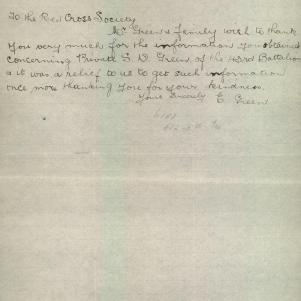 To the Red Cross Society
Mr Green & family wish to thank
you very much for the information you obtained
concerning Private S. D. Green of the 43rd Battalion
as it was a relief to us to get such information
once more thanking you for your kindness.
Yours Sincerely E. Green